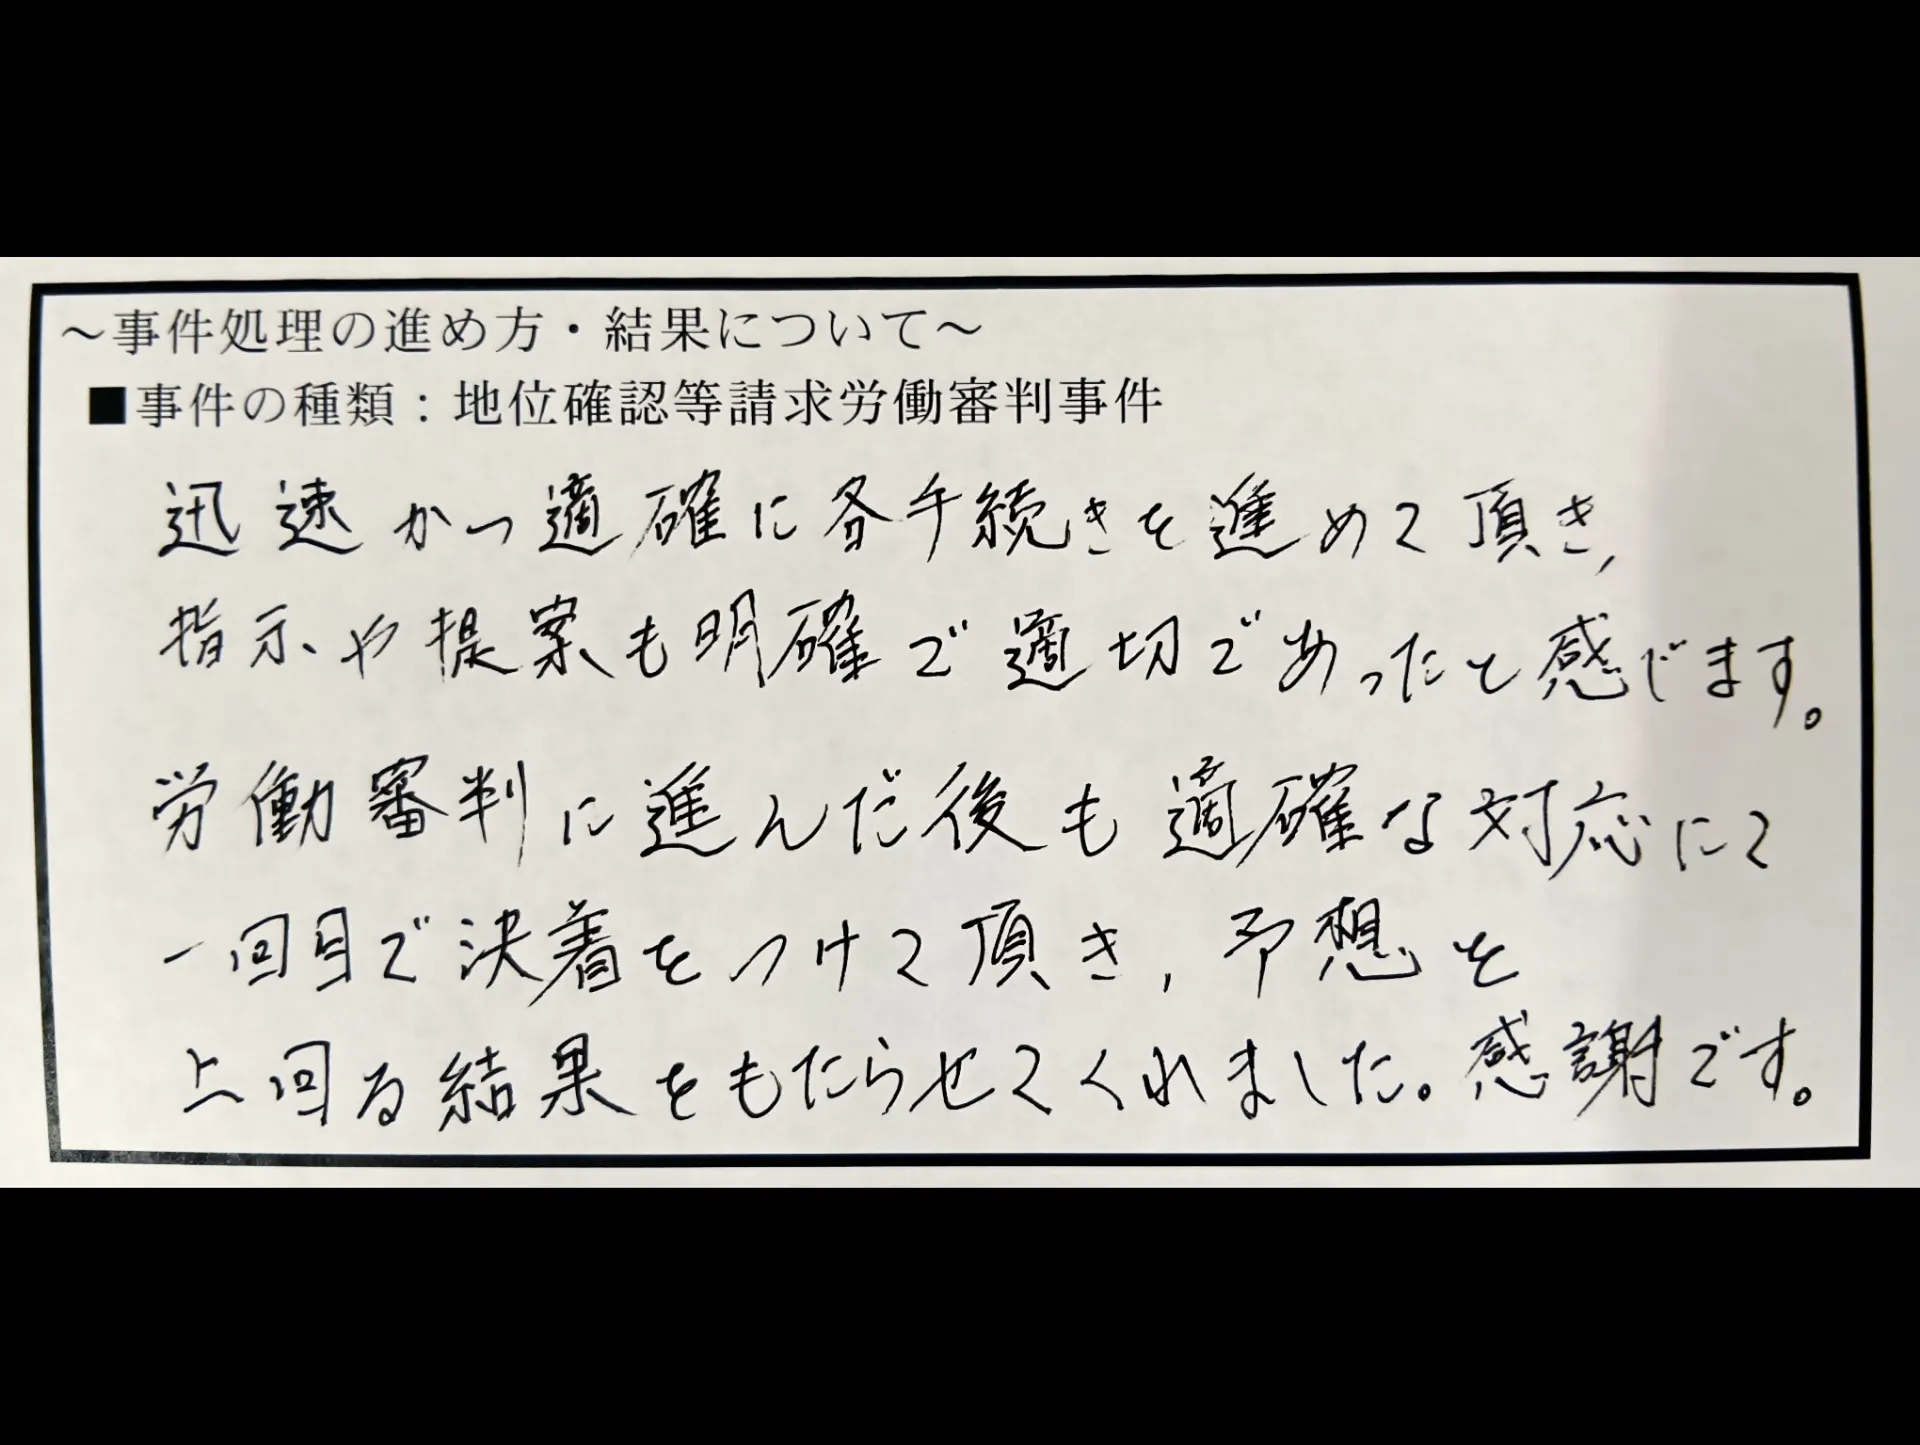 ～事件処理の進め方・結果について～
■事件の種類：地位確認等請求労働審判事件
迅速かつ適確に各手続きを進めて頂き，
指示や提案も明確で適切であったと感じます。
労働審判に進んだ後も適確な対応にて
一回目で決着をつけて頂き，予想を
上回る結果をもたらせてくれました。感謝です。